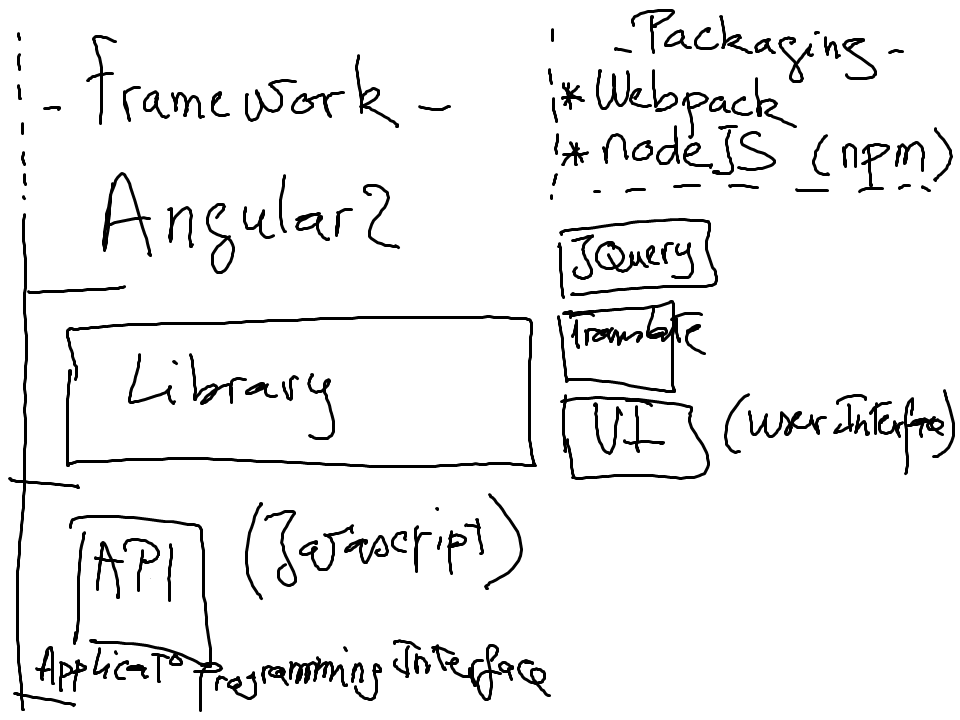 - Framework -
Angular2
Library
API (Javascript)
Applicat° Programming Interface
- Packaging -
* Webpack
* nodeJS (npm)
JQuery
Translate
UI (user Interface)